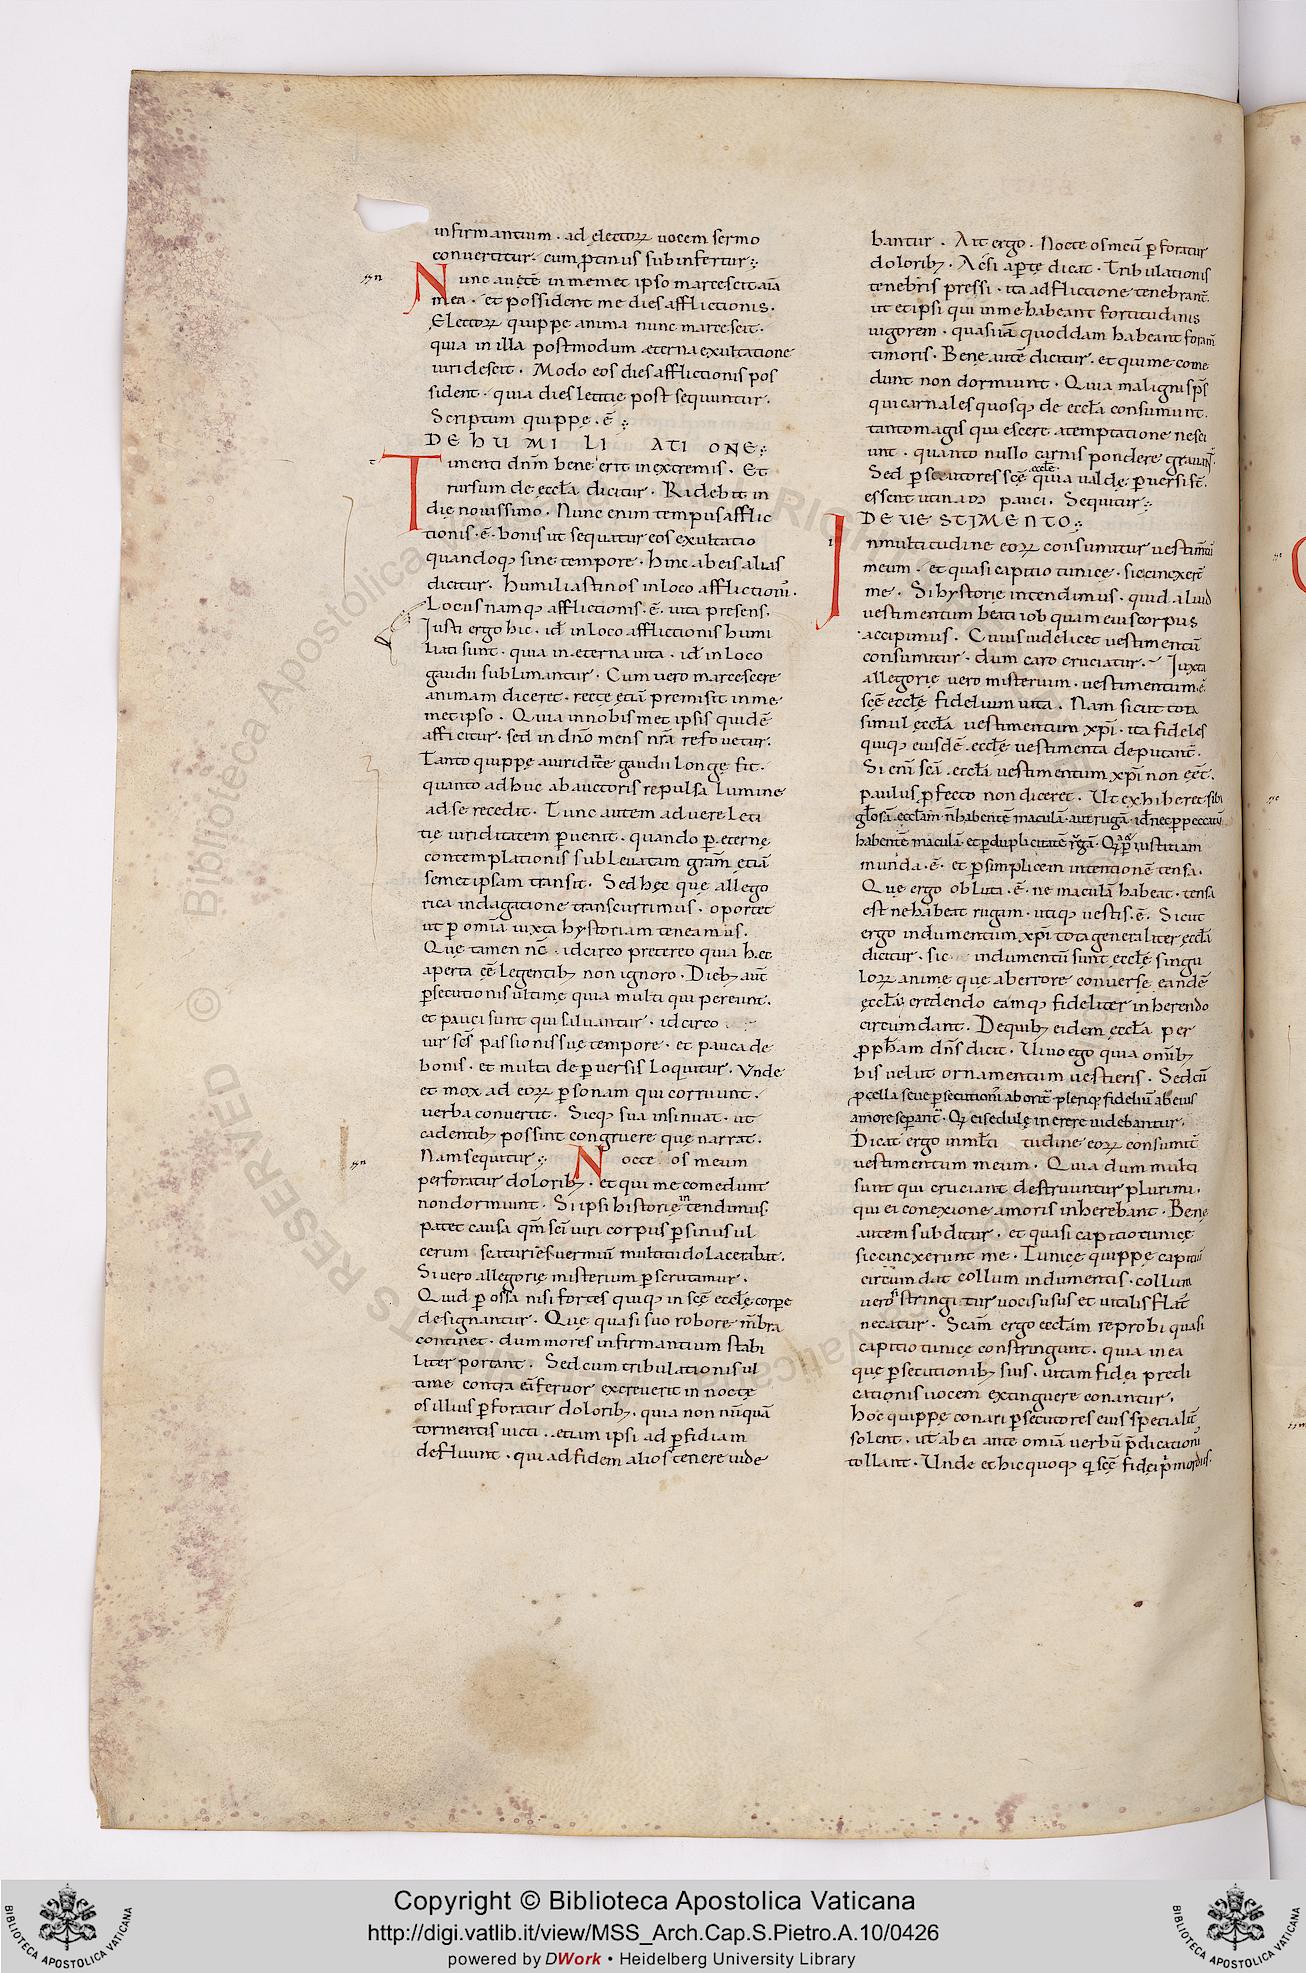 infirmantium . ad electoꝝ uocem sermo
conuertitur . cum ꝓtinus subinfertur ;
Nunc autē in memet ipso marcescit aīa
mea . et possident me dies afflictionis .
Electoꝝ quippe anima nunc marcescit .
quia in illa postmodum eterna exultatione
uiridescit . Modo eos dies afflictionis pos
sident . quia dies letitie post sequuntur .
Scriptum quippe . ē ;
DE HUMILIATIONE ;
Timenti dn̄m bene erit in extremis . Et
rursum de eccƚa dicitur . Ridebit in
die nouissimo . Nunc enim tempus afflic
tionis . ē . bonis ut sequatur eos exultatio
quandoqꝫ sine tempore . Hinc ab eis alias
dicitur . humiliasti nos in loco afflictionis .
Locus namqꝫ afflictionis . ē . uita presens .
Iusti ergo hic . id̄ in loco afflictionis humi
liati sunt . quia in eterna uita . id̄ in loco
gaudii sublimantur . Cum uero marcescere
animam diceret . recte etiā premisit in me
met ipso . Quia in nobis met ipsis quidē
afficitur . sed in dn̄o mens nr̄a refouetur .
Tanto quippe a uiriditate gaudii longe fit .
quanto adhuc ab auctoris repulsa lumine
ad se recedit . Tunc autem ad uere leti
tie uiriditatem ꝑuenit . quando ꝑ eterne
contemplationis subleuatam gram̄ etiā
semet ipsam transit . Sed hęc que allego
rica indagatione transcurrimus . oportet
ut ꝑ omīa iuxta hystoriam teneamus .
Que tamen nc̄ . idcirco pretereo quia hęc
aperta eē legentibꝫ non ignoro . Diebꝫ aut̄
ꝑsecutionis ultime quia multi qui pereunt .
et pauci sunt qui saluantur . idcirco
uir sc̄s passionis suę tempore . et pauca de
bonis . et multa de ꝑuersis loquitur . Unde
et mox ad eoꝝ ꝑsonam qui corruunt .
uerba conuertit . Sicqꝫ sua insinuat . ut
cadentibꝫ possint congruere que narrat .
Nam sequitur ; Nocte os meum
perforatur doloribꝫ . et qui me comedunt
non dormiunt . Si ipsi historię intendimus
patet causa qm̄ sc̄i uiri corpus ꝑ sinus ul
cerum scaturiēs uermiū multitudo lacerabat .
Si uero allegorię misterium ꝑscrutamur .
Quid ꝑ ossa nisi fortes quiqꝫ in sc̄ę eccƚę corpore
designantur . Que quasi suo robore mēbra
continet . dum mores infirmantium stabi
liter portant . Sed cum tribulationis ul
time contra eā feruor excreuerit in nocte
os illius ꝑforatur doloribꝫ . quia non nūquā
tormentis uicti . etiam ipsi ad ꝑfidiam
defluunt . qui ad fidem alios tenere uide
bantur . Ait ergo . Nocte os meū ꝑforatur
doloribꝫ . Acsi aꝑte dicat . Tribulationis
tenebris pressi . ita adflictione tenebrant̄ .
ut et ipsi qui in me habeant fortitudinis
uigorem . quasi iā quoddam habeant foramē
timoris . Bene autē dicitur . et qui me come
dunt non dormiunt . Quia maligni sp̄s
qui carnales quosqꝫ de eccƚa consumunt .
tanto magis quiescere a temptatione nesci
unt . quanto nullo carnis pondere grauant̄ .
Sed ꝑsecutores scę eccƚe quia ualde ꝑuersi st̄ .
essent utinam pauci . Sequitur ;
DE UESTIMENTO ;
In multitudine eoꝝ consumitur uestimtū
meum . et quasi capitio tunice . sic cinxert̄
me . Si hystorie intendimus . quid aliud
uestimentum beati iob quam eius corpus
accipimus . Cuius uidelicet uestimentū
consumitur . dum caro cruciatur . Iuxta
allegorię uero misterium . uestimentum ē .
scę eccƚę fidelium uita . Nam sicut tota
simul eccƚa uestimentum xp̄i . ita fideles
quiqꝫ eiusdē eccƚę uestimenta deputant̄ .
Si eni̅ scā eccƚa uestimentum xp̄i non eēt .
paulus ꝓfecto non diceret . Ut exhiberet sibi
gƚosam eccƚam n̄ habentē maculā . aut rugā . id̄ nec ꝑ peccatū
habentē maculā . et ꝑ duplicitatē rugā . Quia ꝑ iustitiam
munda . ē . et ꝑ simplicem intentionē tensa .
Que ergo obluta . ē . ne maculā habeat . tensa
est ne habeat rugam . utiqꝫ uestis . ē . Sicut
ergo indumentum xp̄i tota generaliter eccƚa
dicitur . sic indumentū sunt eccƚę singu
loꝝ anime que ab errore conuerse eandē
eccƚam credendo eamqꝫ fideliter inherendo
circumdant . De quibꝫ eidem eccƚa per
ꝓpħam dn̄s dicit . Uiuo ego quia omībꝫ
his uelut ornamentum uestieris . Sed cū
ꝓcella seue ꝑsecutionis aborit̄ plerique fideliū ab eius
amore seꝑant̄ . Qui ei sedule inerere uidebantur .
Dicat ergo in multitudine eoꝝ consumit̄
uestimentum meum . Quia dum multi
sunt qui cruciant destruuntur plurimi .
qui ei conexione amoris inherebant . Bene
autem subditur . et quasi capitio tunicę
sic cinxerunt me . Tunicę quippe capitiū
circumdat collum indumentis . collum
uero si stringitur uocis usus et uitalis flat̄
necatur . Scam̄ ergo eccƚam reprobi quasi
capitio tunicę constringunt . quia in ea
que ꝑsecutionibꝫ suis . uitam fidei predi
cationis uocem extinguere conantur .
hoc quippe conari ꝑsecutores eius specialit̄
solent . ut ab ea ante omīa uerbū p̄dicationis
tollant . Unde et hic quoqꝫ qui scę fidei primordiis .
Copyright © Biblioteca Apostolica Vaticana
http://digi.vatlib.it/view/MSS_Arch.Cap.S.Pietro.A.10/0426
powered by DWork • Heidelberg University Library